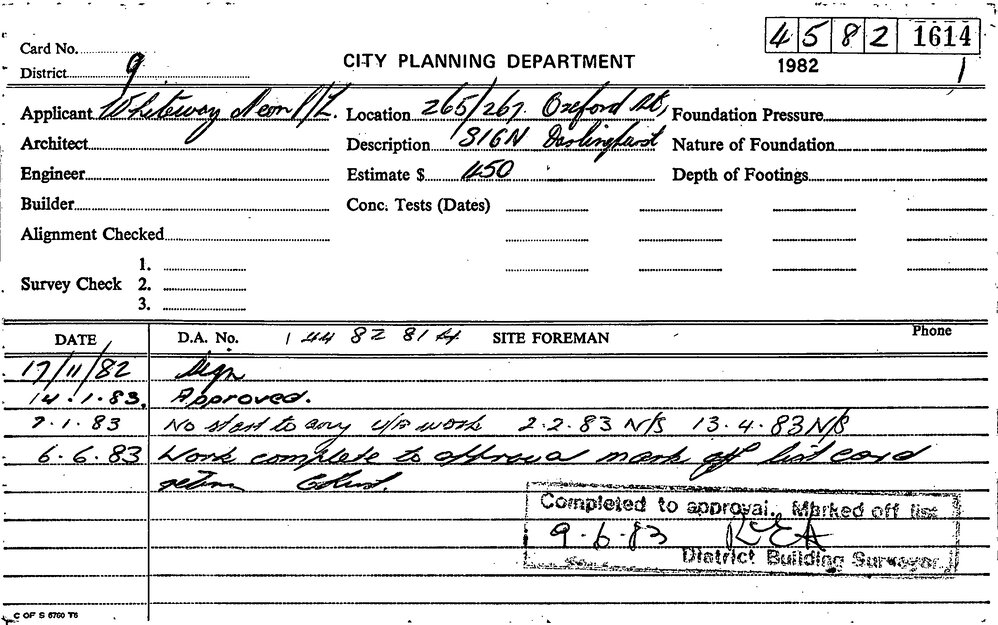 4 5 8 2 1614
Card No.
CITY PLANNING DEPARTMENT
1982 1
District 9
Applicant Whiteway Neon P/L. Location 265/267 Oxford St, Foundation Pressure
Architect Description SIGN Darlinghurst Nature of Foundation
Engineer Estimate $ 450 Depth of Footings
Builder Conc. Tests (Dates)
Alignment Checked
1.
Survey Check 2.
3.
DATE D.A. No. 1 44 82 814 SITE FOREMAN Phone
17/11/82 Sign
14.1.83. Approved.
No start to any work 2.2.83 N/S 13.4.83 N/S
6.6.83 Work complete to approval mark off list card
return
Completed to approval. Marked off list
9.6.83
District Building Surveyor
C OF S 6760 T6